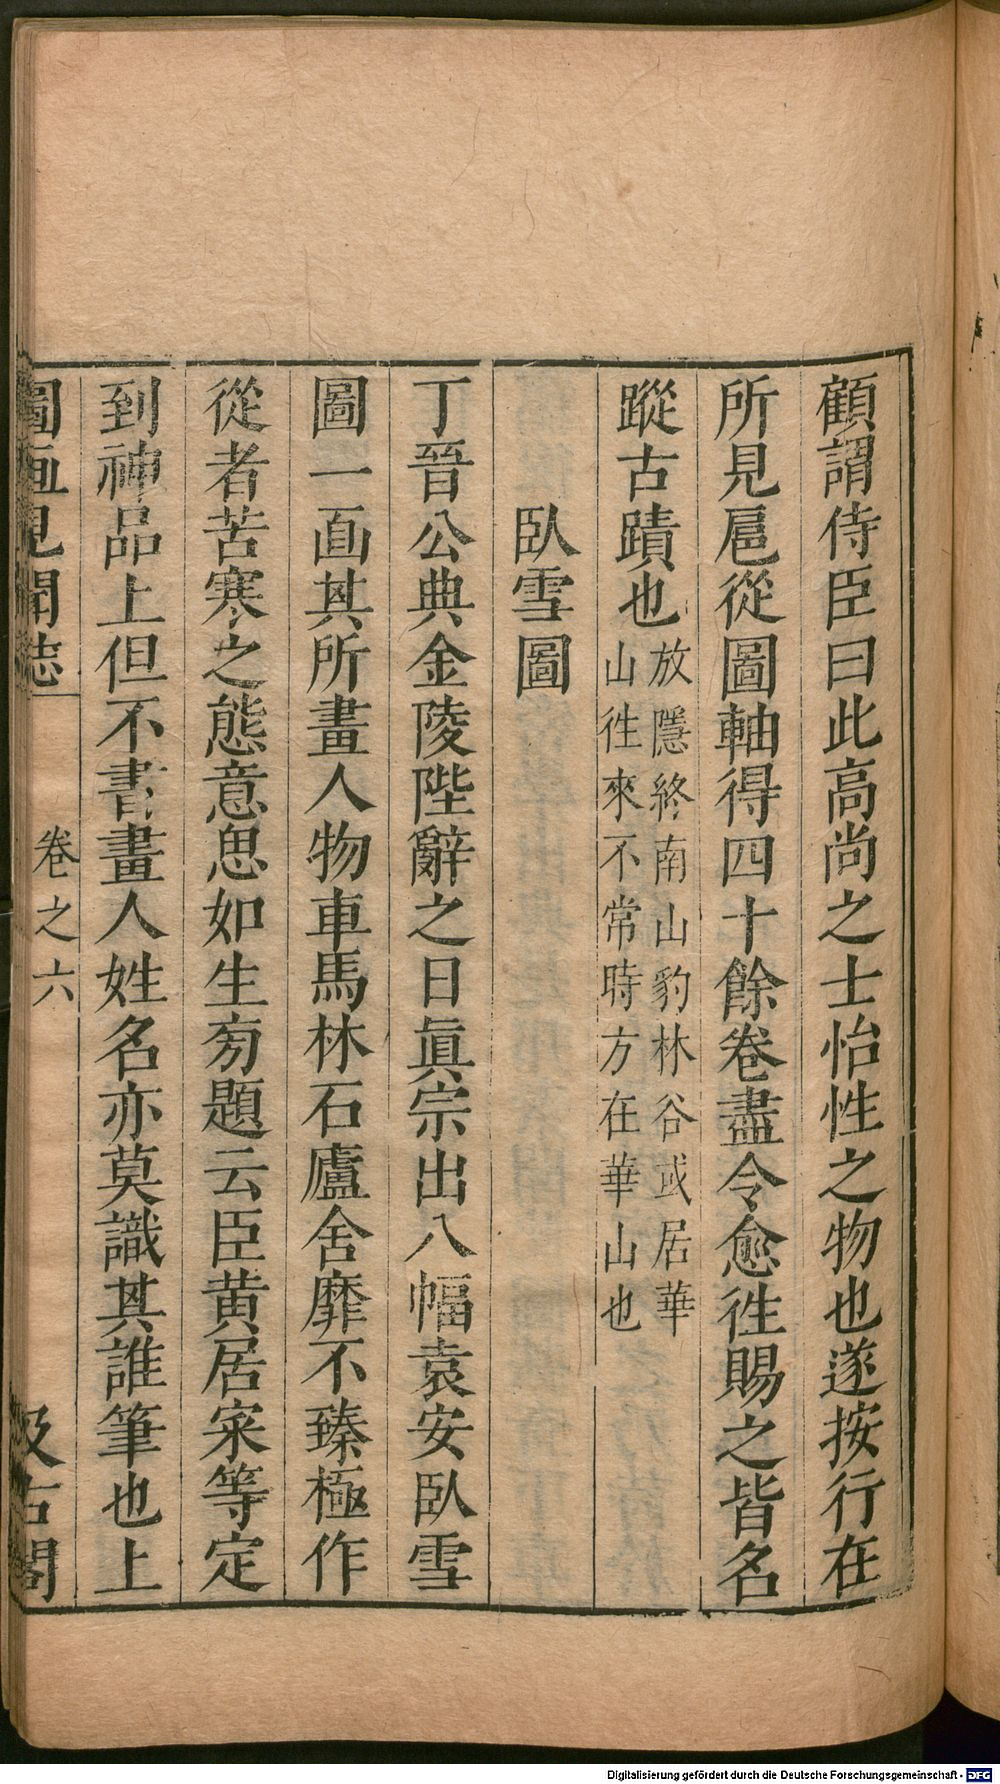 顧謂侍臣曰此高尚之士怡性之物也遂按行在
所見扈從圖軸得四十餘卷盡令愈徃賜之皆名
蹤古蹟也放隱終南山豹林谷或居華
山徃來不常時方在華山也
臥雪圖
丁晉公典金陵陛辭之日眞宗出八幅袁安臥雪
圖一面其所畫人物車馬林石廬舍靡不臻極作
從者苦寒之態意思如生旁題云臣黃居寀等定
到神品上但不書畫人姓名亦莫識其誰筆也上
圖画見聞志 卷之六 汲古閣
Digitalisierung gefördert durch die Deutsche Forschungsgemeinschaft - DFG